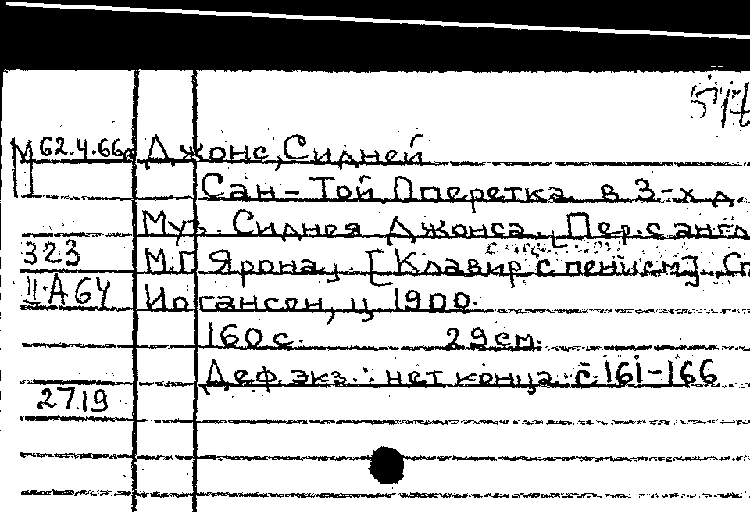 М 62.4.66а Джонс, Сидней
Сан-Той. Оперетка в 3-х д.
Муз. Сиднея Джонса. Пер. с англ
323 М.Г. Ярона, [Клавир с пением]. Сп
II A 64 Иогансон, ц. 1900.
160 с. 29 см.
Деф. экз.: нет конца с. 161-166
2719